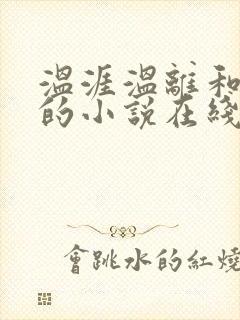 溫涯溫離和
的小說在綫
會跳水的紅燒